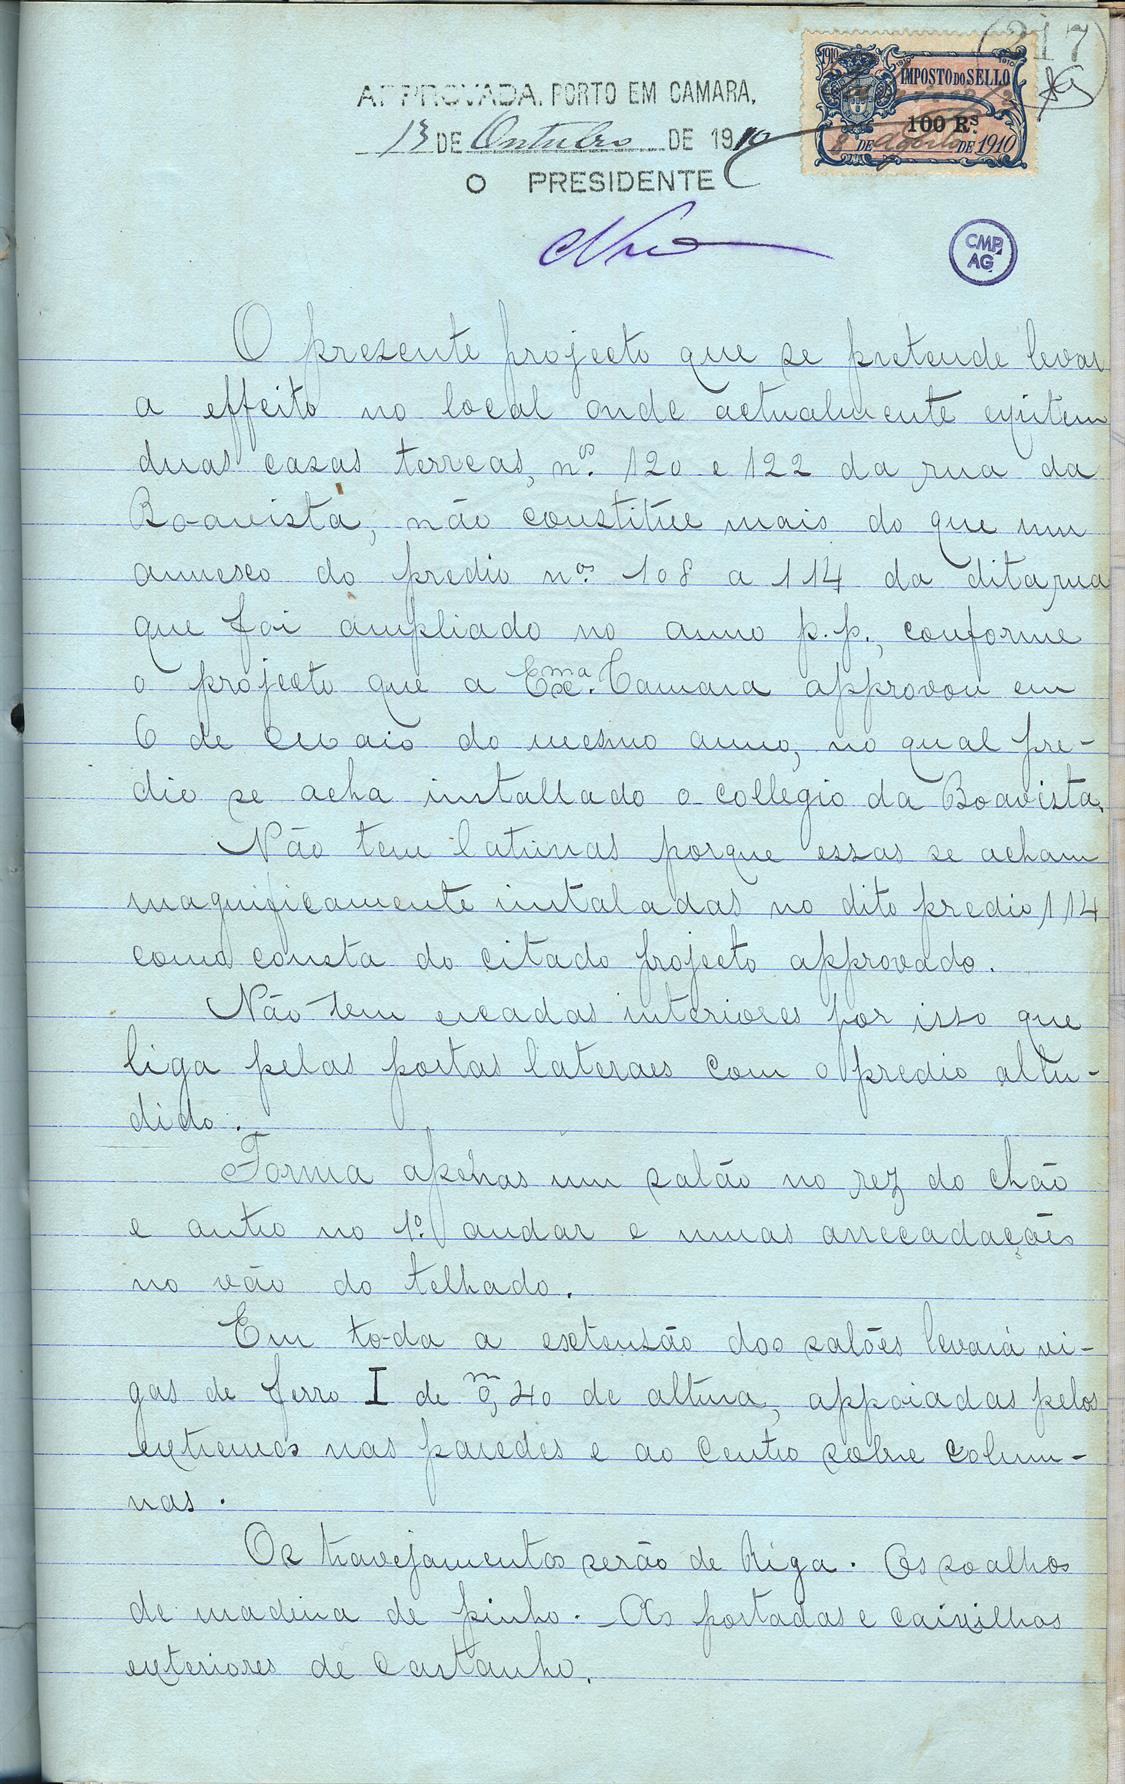 217
1910 1910
IMPOSTO DO SELLO
100 Rs.
8 DE Agosto DE 1910
APPROVADA. PORTO EM CAMARA,
13 DE Outubro DE 1910
O PRESIDENTE
CMP
AG
O presente projecto que se pretende levar
a effeito no local onde actualmente existem
duas cazas terreas, nos. 120 e 122 da rua da
Boavista, não constitue mais do que um
annexo do predio nos. 108 a 114 da dita rua
que foi ampliado no anno p. p., conforme
o projecto que a Exma. Camara approvou em
6 de Maio do mesmo anno, no qual pre-
dio se acha installado o collegio da Boavista.
Não tem latrinas porque essas se acham
magnificamente instaladas no dito predio 114
como consta do citado projecto approvado.
Não tem escadas interiores por isso que
liga pelas portas lateraes com o predio allu-
dido.
Forma apenas um salão no rez do chão
e outro no 1º. andar e umas arrecadações
no vão do telhado.
Em toda a extensão dos salões levará vi-
gas de ferro I de 0,m40 de altura, appoiadas pelos
extremos nas paredes e ao centro sobre colum-
nas.
Os travejamentos serão de Riga. Os soalhos
de madeira de pinho. As portadas e caixilhos
exteriores de Castanho.